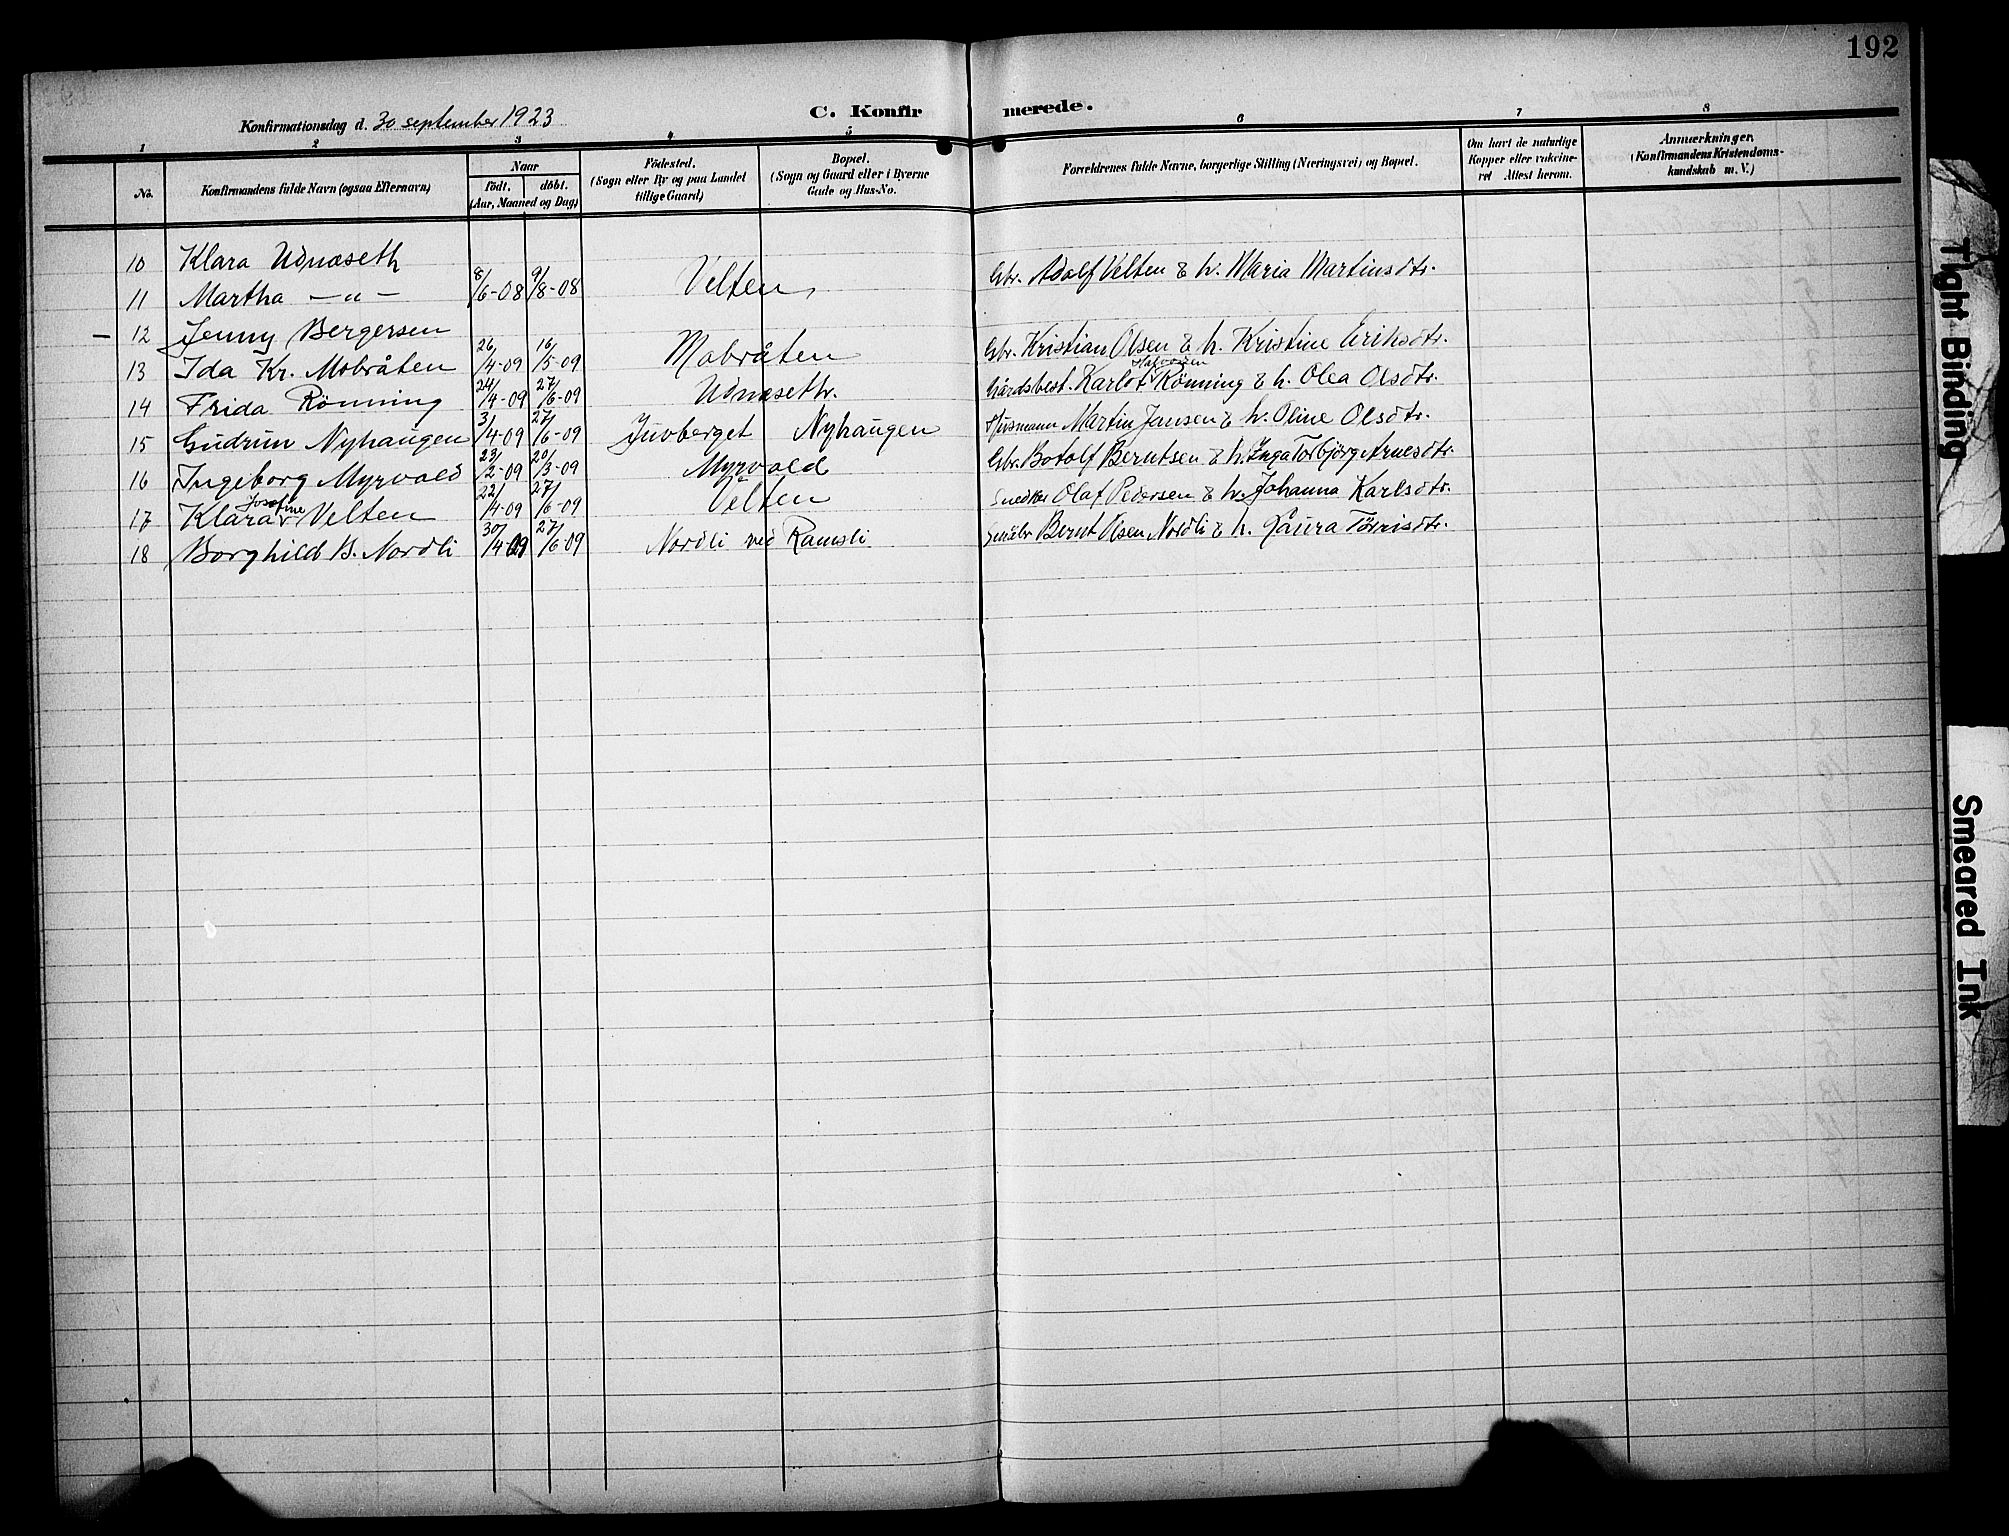 192
Konfirmationsdag d. 30 september 1923 C. Konfirmerede.
1 2 3 4 5 6 7 8
No. Konfirmandens fulde Navn (ogsaa Efternavn) Naar født, døbt. (Aar, Maaned og Dag) Fødested. (Sogn eller By og paa Landet tillige Gaard) Bopæl. (Sogn og Gaard eller i Byerne Gade og Hus-No. Forældrenes fulde Navne, borgerlige Stilling (Næringsvei) og Bopæl. Om havt de naturlige Kopper eller vakcineret Attest herom. Anmærkninger. (Konfirmandens Kristendomskundskab m. V.)
10 Klara Udnæseth
11 Martha -"- 8/6-08 9/8-08 Velten Gbr. Adolf Velten & h. Maria Martinsdtr.
- 12 Jenny Bergersen
13 Ida Kr. Mobråten 26/4-09 16/5-09 Mobråten Gbr. Kristian Olsen & h. Kristine Eriksdtr.
14 Frida Rönning 24/4-09 27/6-09 Udnæseth. Gårdsbest. Karlot Halvorsen Rönning & h. Olea Olsdtr.
15 Gudrun Nyhaugen 3/4-09 27/6-09 Juvberget Nyhaugen Husmann Martin Jansen & h. Oline Olsdtr.
16 Ingeborg Myrvold 23/2-09 20/3-09 Myrvold Gbr. Botolf Berntsen & h. Inga Torbjörg Arnesdtr.
17 Klara Josefine Velten 22/4-09 27/6-09 Velten Snedker Olaf Pedersen & h. Johanna Karlsdtr.
18 Borghild B. Nordli 30/4-09 27/6-09 Nordli ved Ramsli Småbr Bernt Olsen Nordli & h. Laura Törrisdtr.
Tight Binding
Smeared Ink